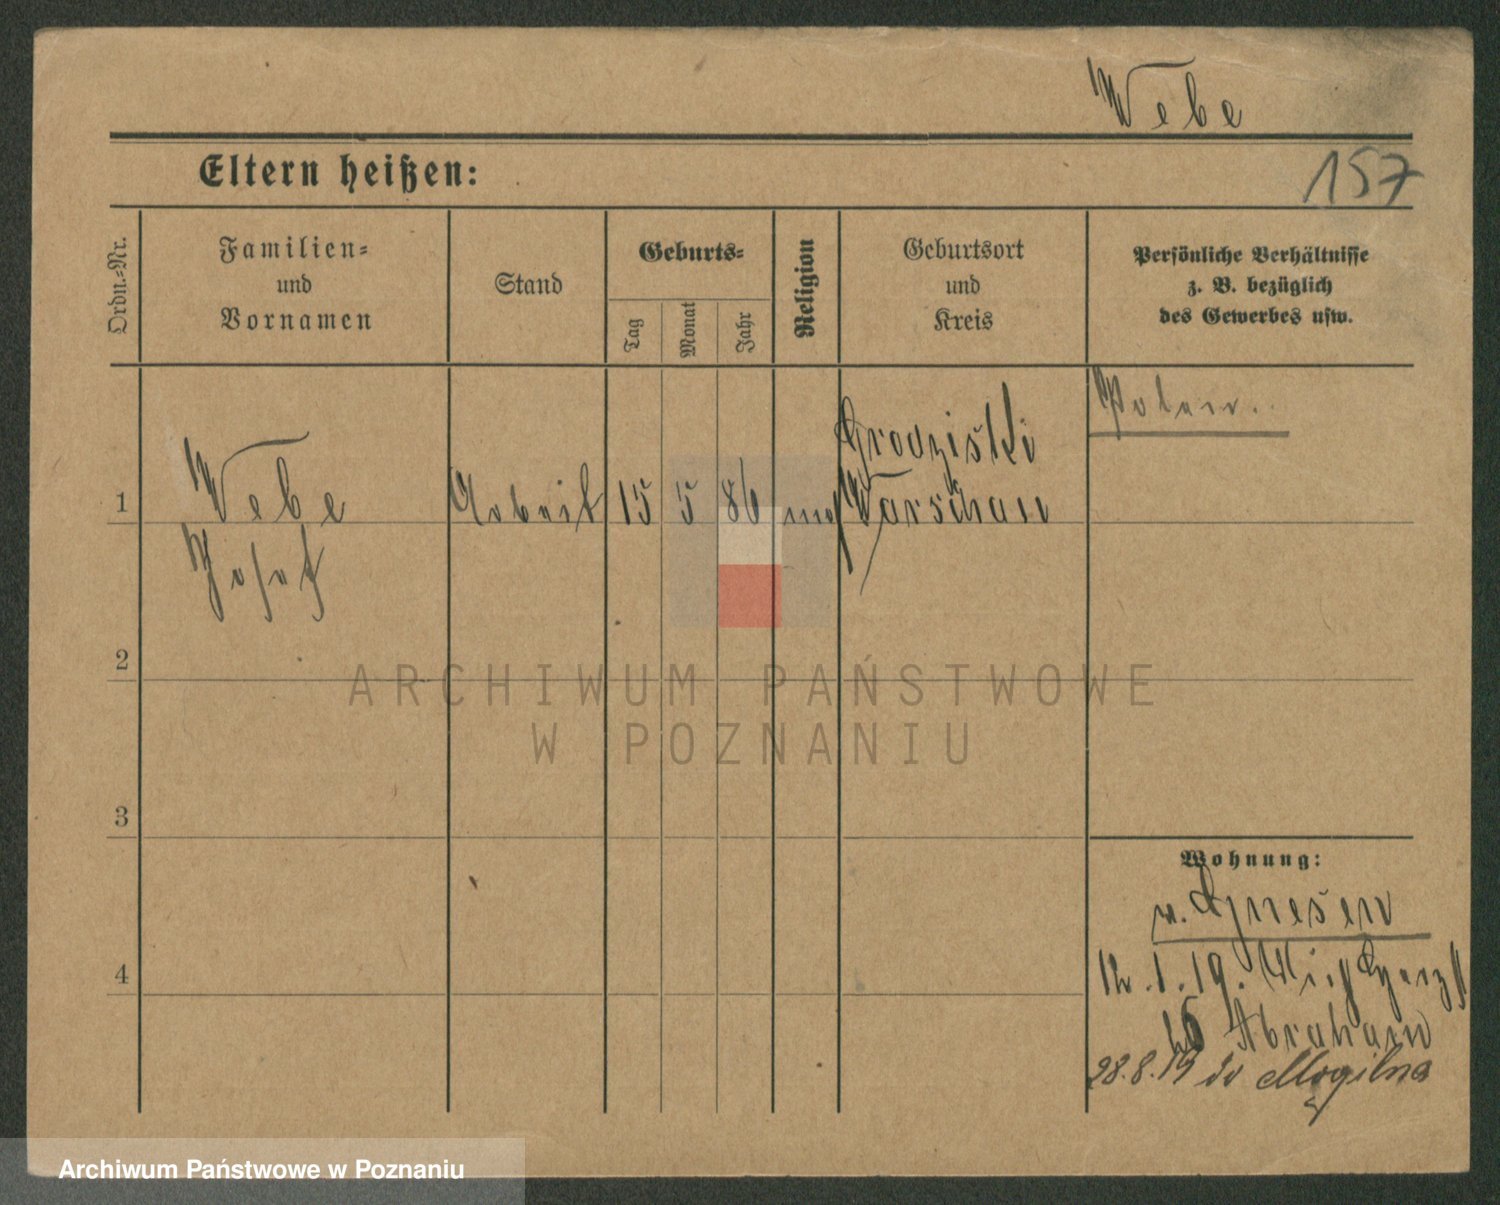 Webe
Eltern heißen:
157
Ordn.-Nr.
Familien-
und
Vornamen
Stand
Geburts-
Tag
Monat
Jahr
Religion
Geburtsort
und
Kreis
Persönliche Verhältnisse
z. B. bezüglich
des Gewerbes usw.
1
Webe
Josef
Arbeit
15
5
86
Grodziski
Warschau
Polen.
2
3
4
Wohnung:
v. Gnesen
12.1.19.
Abraham
28.8.19 do Mogilna
ARCHIWUM PAŃSTWOWE
W POZNANIU
Archiwum Państwowe w Poznaniu